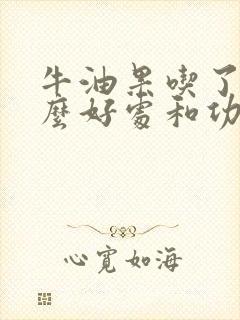 牛油果喫了
麼好處和功
心寬如海